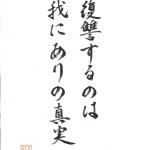 復讐するのは
我にありの真実